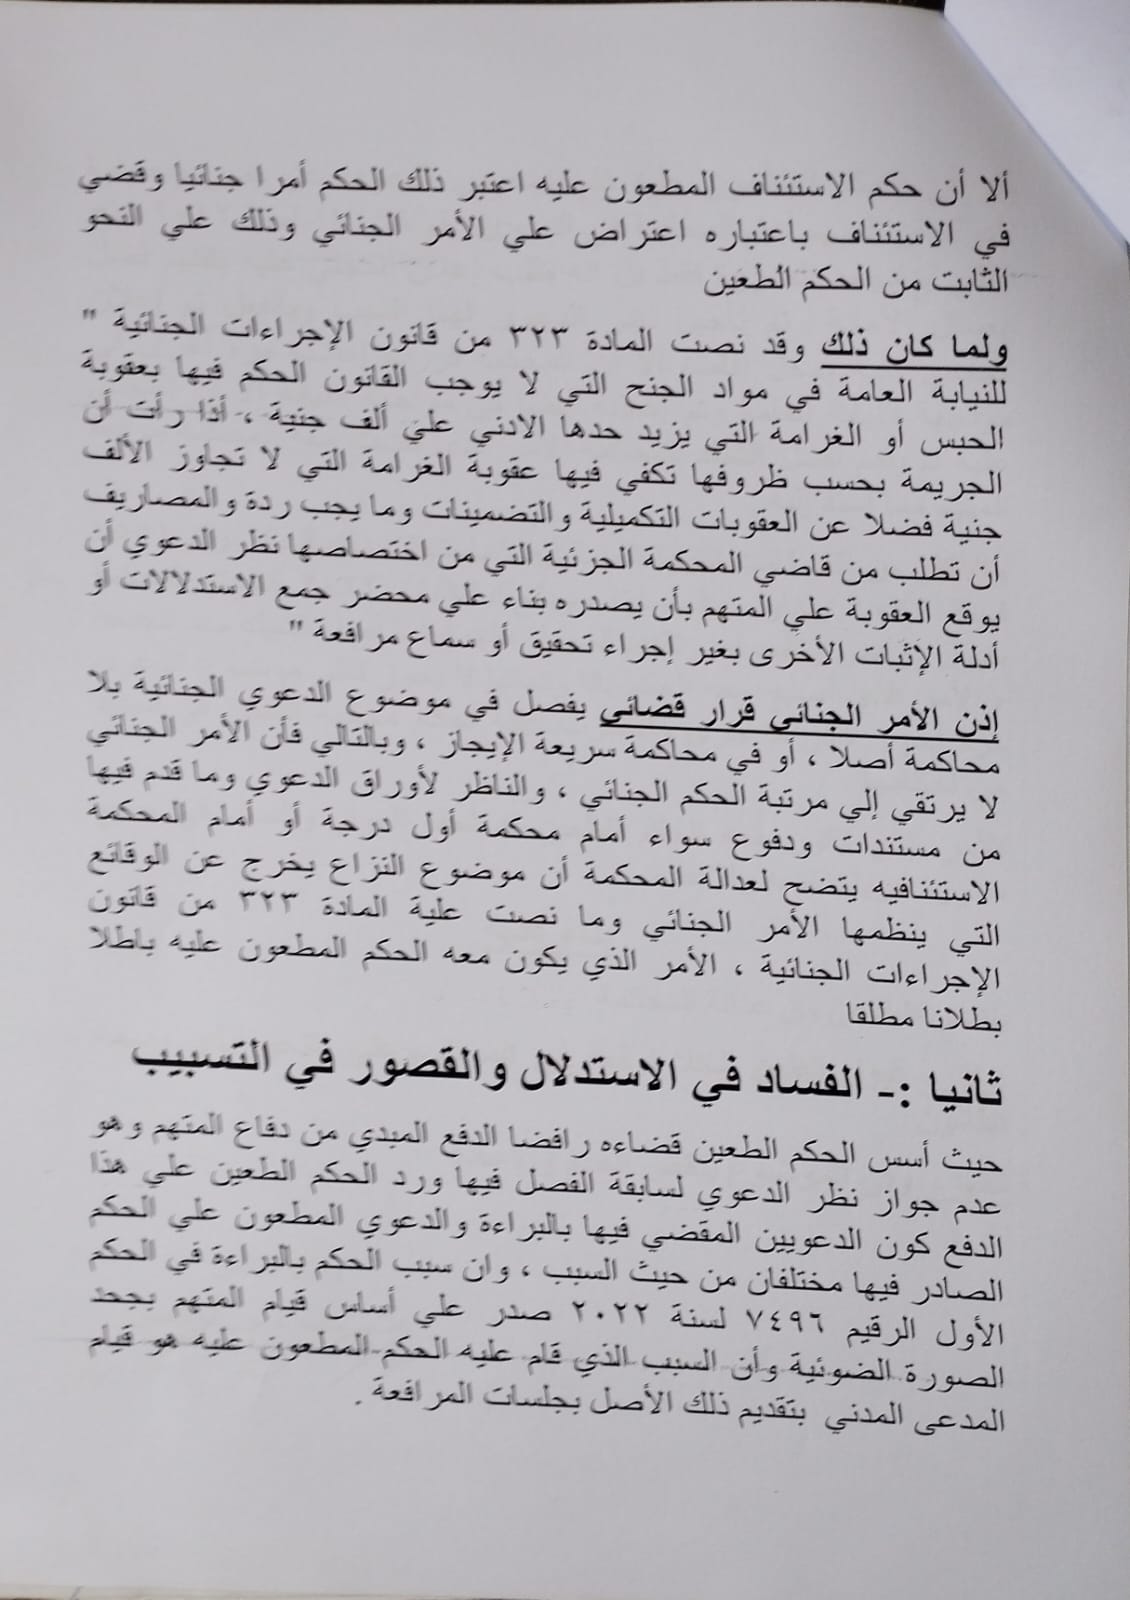 ألا أن حكم الاستئناف المطعون عليه اعتبر ذلك الحكم أمرا جنائيا وقضي
في الاستئناف باعتباره اعتراض علي الأمر الجنائي وذلك علي النحو
الثابت من الحكم الطعين
ولما كان ذلك وقد نصت المادة ٣٢٣ من قانون الإجراءات الجنائية "
للنيابة العامة في مواد الجنح التي لا يوجب القانون الحكم فيها بعقوبة
الحبس أو الغرامة التي يزيد حدها الادني علي ألف جنية ، أذا رأت أن
الجريمة بحسب ظروفها تكفي فيها عقوبة الغرامة التي لا تجاوز الألف
جنية فضلا عن العقوبات التكميلية والتضمينات وما يجب ردة والمصاريف
أن تطلب من قاضي المحكمة الجزئية التي من اختصاصها نظر الدعوي أن
يوقع العقوبة علي المتهم بأن يصدره بناء علي محضر جمع الاستدلالات أو
أدلة الإثبات الأخرى بغير إجراء تحقيق أو سماع مرافعة "
إذن الأمر الجنائي قرار قضائي يفصل في موضوع الدعوي الجنائية بلا
محاكمة أصلا ، أو في محاكمة سريعة الإيجاز ، وبالتالي فأن الأمر الجنائي
لا يرتقي إلي مرتبة الحكم الجنائي ، والناظر لأوراق الدعوي وما قدم فيها
من مستندات ودفوع سواء أمام محكمة أول درجة أو أمام المحكمة
الاستئنافيه يتضح لعدالة المحكمة أن موضوع النزاع يخرج عن الوقائع
التي ينظمها الأمر الجنائي وما نصت علية المادة ٣٢٣ من قانون
الإجراءات الجنائية ، الأمر الذي يكون معه الحكم المطعون عليه باطلا
بطلانا مطلقا
ثانيا :- الفساد في الاستدلال والقصور في التسبيب
حيث أسس الحكم الطعين قضاءه رافضا الدفع المبدي من دفاع المتهم وهو
عدم جواز نظر الدعوي لسابقة الفصل فيها ورد الحكم الطعين علي هذا
الدفع كون الدعويين المقضي فيها بالبراءة والدعوي المطعون علي الحكم
الصادر فيها مختلفان من حيث السبب ، وان سبب الحكم بالبراءة في الحكم
الأول الرقيم ٧٤٩٦ لسنة ٢٠٢٢ صدر علي أساس قيام المتهم بجحد
الصورة الضوئية وأن السبب الذي قام عليه الحكم المطعون عليه هو قيام
المدعى المدني بتقديم ذلك الأصل بجلسات المرافعة .